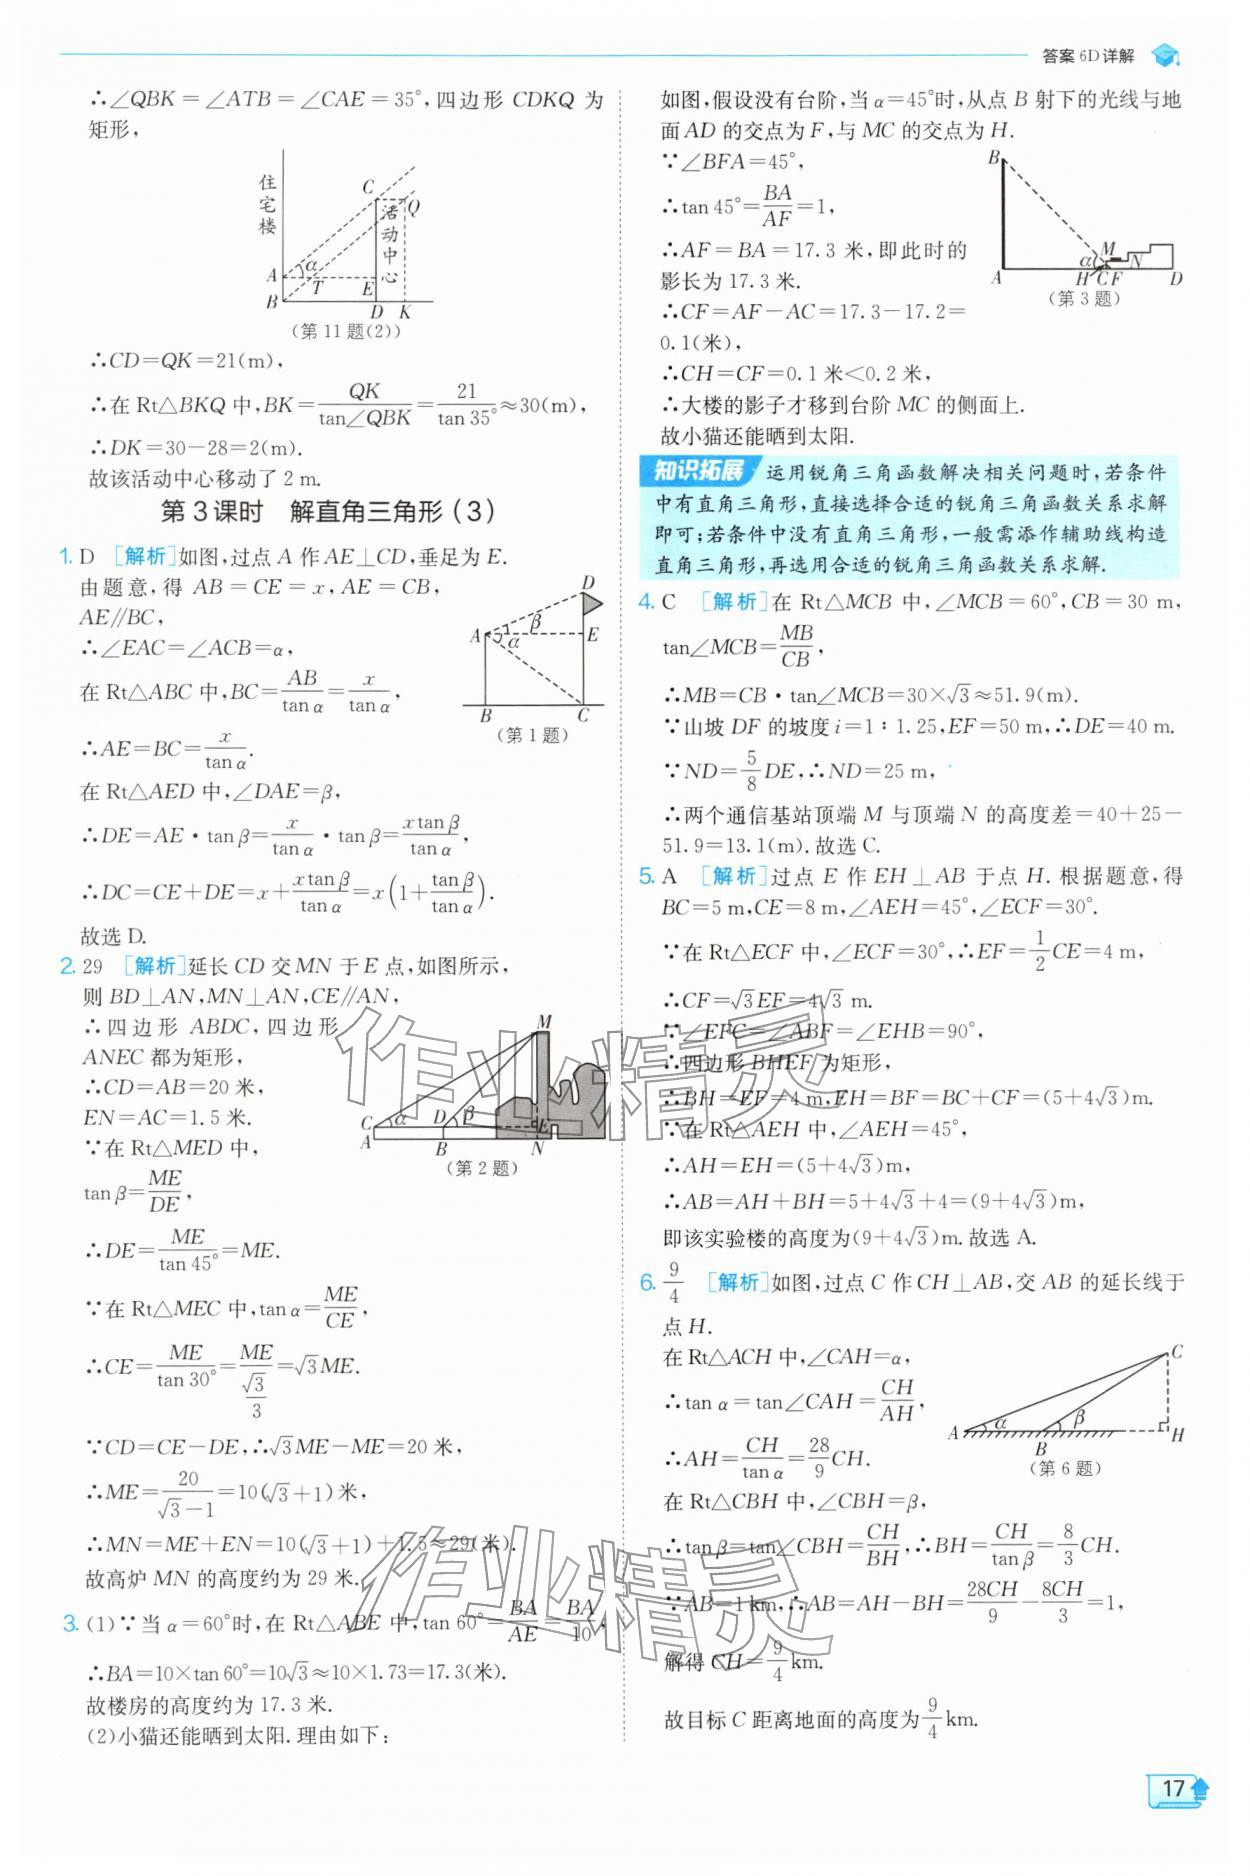 答案 6D详解
∴∠QBK=∠ATB=∠CAE=35°,四边形 CDKQ 为
矩形,
住宅楼
C
Q
活动中心
A
α
T
E
B
D
K
(第11题(2))
∴CD=QK=21(m),
∴在 Rt△BKQ 中,BK=QK/tan∠QBK=21/tan 35°≈30(m),
∴DK=30-28=2(m).
故该活动中心移动了 2 m.
第3课时 解直角三角形(3)
1. D [解析]如图,过点 A 作 AE⊥CD,垂足为 E.
由题意,得 AB=CE=x,AE=CB,
AE∥BC,
∴∠EAC=∠ACB=α,
在 Rt△ABC 中,BC=AB/tan α=x/tan α,
∴AE=BC=x/tan α.
D
β
A
α
E
B
C
(第1题)
在 Rt△AED 中,∠DAE=β,
∴DE=AE·tan β=x/tan α·tan β=xtan β/tan α,
∴DC=CE+DE=x+xtan β/tan α=x(1+tan β/tan α).
故选 D.
2. 29 [解析]延长 CD 交 MN 于 E 点,如图所示,
则 BD⊥AN,MN⊥AN,CE∥AN,
∴四边形 ABDC,四边形
ANEC 都为矩形,
∴CD=AB=20 米,
EN=AC=1.5 米.
∵在 Rt△MED 中,
tan β=ME/DE,
M
C
α
D
β
E
A
B
N
(第2题)
∴DE=ME/tan 45°=ME.
∵在 Rt△MEC 中,tan α=ME/CE,
∴CE=ME/tan 30°=ME/(√3/3)=√3ME.
∵CD=CE-DE,∴√3ME-ME=20 米,
∴ME=20/(√3-1)=10(√3+1)米,
∴MN=ME+EN=10(√3+1)+1.5≈29(米).
故高炉 MN 的高度约为 29 米.
3. (1)∵当 α=60°时,在 Rt△ABE 中,tan 60°=BA/AE=BA/10,
∴BA=10×tan 60°=10√3≈10×1.73=17.3(米).
故楼房的高度约为 17.3 米.
(2)小猫还能晒到太阳.理由如下:
如图,假设没有台阶,当 α=45°时,从点 B 射下的光线与地
面 AD 的交点为 F,与 MC 的交点为 H.
∵∠BFA=45°,
∴tan 45°=BA/AF=1,
∴AF=BA=17.3 米,即此时的
影长为 17.3 米.
∴CF=AF-AC=17.3-17.2=
0.1(米),
∴CH=CF=0.1 米<0.2 米,
∴大楼的影子才移到台阶 MC 的侧面上.
故小猫还能晒到太阳.
B
M
α
N
A
H
C
F
D
(第3题)
知识拓展 运用锐角三角函数解决相关问题时,若条件
中有直角三角形,直接选择合适的锐角三角函数关系求解
即可;若条件中没有直角三角形,一般需添作辅助线构造
直角三角形,再选用合适的锐角三角函数关系求解.
4. C [解析]在 Rt△MCB 中,∠MCB=60°,CB=30 m,
tan∠MCB=MB/CB,
∴MB=CB·tan∠MCB=30×√3≈51.9(m).
∵山坡 DF 的坡度 i=1∶1.25,EF=50 m,∴DE=40 m.
∵ND=5/8DE,∴ND=25 m,
∴两个通信基站顶端 M 与顶端 N 的高度差=40+25-
51.9=13.1(m).故选 C.
5. A [解析]过点 E 作 EH⊥AB 于点 H.根据题意,得
BC=5 m,CE=8 m,∠AEH=45°,∠ECF=30°.
∵在 Rt△ECF 中,∠ECF=30°,∴EF=1/2CE=4 m,
∴CF=√3EF=4√3 m.
∵∠EFC=∠ABF=∠EHB=90°,
∴四边形 BHEF 为矩形,
∴BH=EF=4 m,EH=BF=BC+CF=(5+4√3)m.
∵在 Rt△AEH 中,∠AEH=45°,
∴AH=EH=(5+4√3)m,
∴AB=AH+BH=5+4√3+4=(9+4√3)m,
即该实验楼的高度为(9+4√3)m.故选 A.
6. 9/4 [解析]如图,过点 C 作 CH⊥AB,交 AB 的延长线于
点 H.
在 Rt△ACH 中,∠CAH=α,
∴tan α=tan∠CAH=CH/AH,
∴AH=CH/tan α=28/9CH.
C
A
α
β
B
H
(第6题)
在 Rt△CBH 中,∠CBH=β,
∴tan β=tan∠CBH=CH/BH,∴BH=CH/tan β=8/3CH.
∵AB=1 km,∴AB=AH-BH=28CH/9-8CH/3=1,
解得 CH=9/4 km.
故目标 C 距离地面的高度为9/4 km.
作业精灵
作业精灵
17